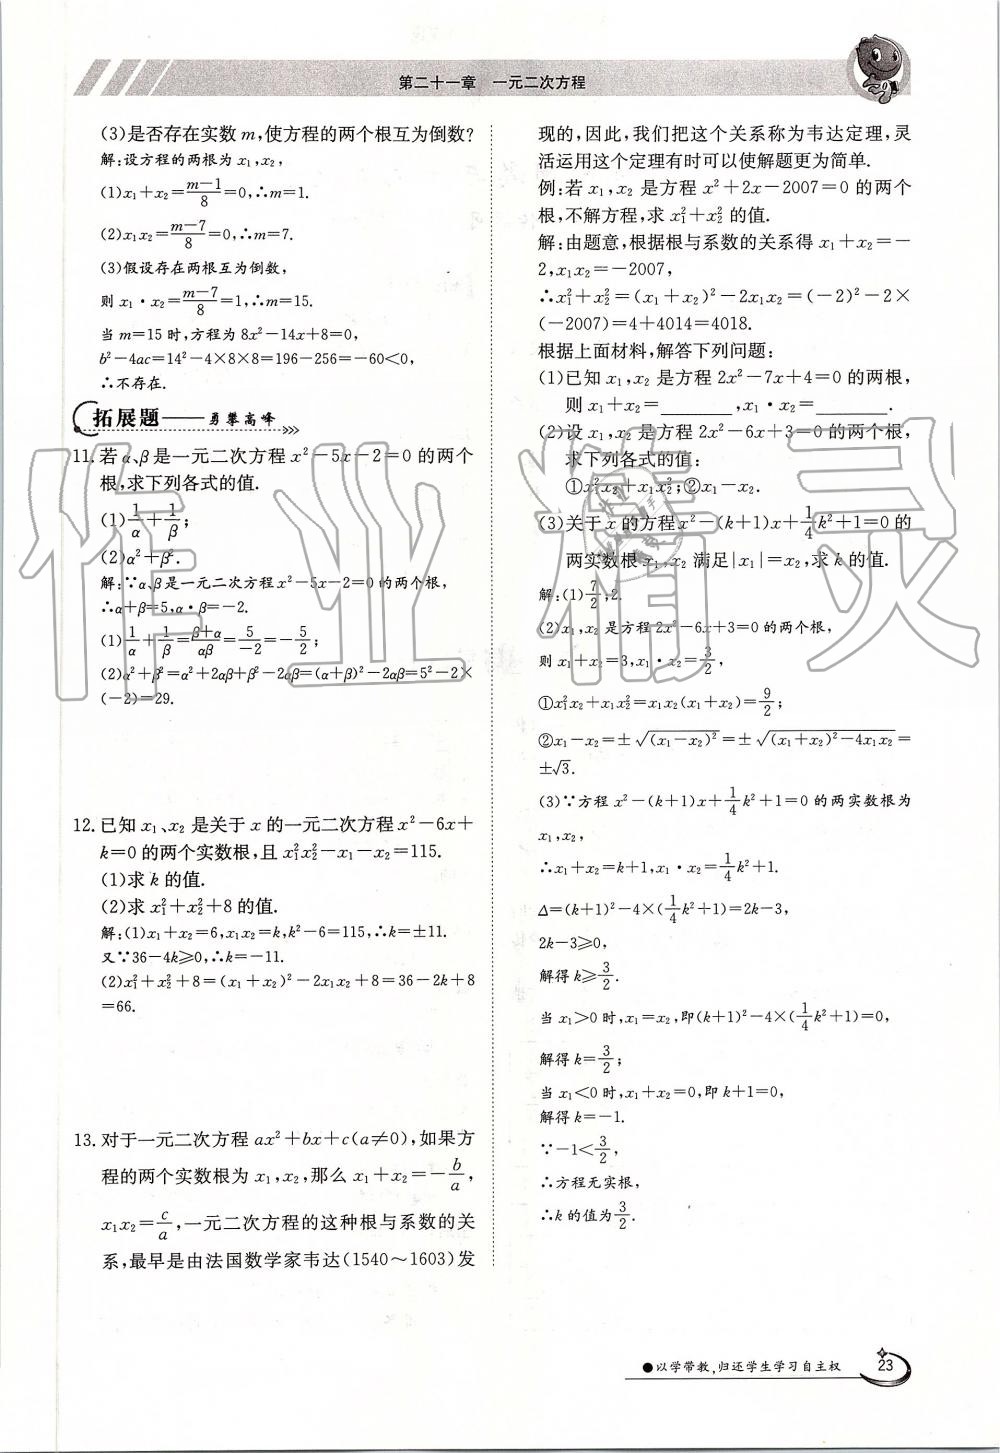 第二十一章　一元二次方程
(3)是否存在实数 m,使方程的两个根互为倒数?
解:设方程的两根为 x₁,x₂,
(1)x₁+x₂=(m-1)/8=0,∴m=1.
(2)x₁x₂=(m-7)/8=0,∴m=7.
(3)假设存在两根互为倒数,
则 x₁·x₂=(m-7)/8=1,∴m=15.
当 m=15 时,方程为 8x²-14x+8=0,
b²-4ac=14²-4×8×8=196-256=-60<0,
∴不存在.
拓展题——勇攀高峰
11.若 α、β是一元二次方程 x²-5x-2=0 的两个
根,求下列各式的值.
(1)1/α+1/β;
(2)α²+β².
解:∵α、β是一元二次方程 x²-5x-2=0 的两个根,
∴α+β=5,α·β=-2.
(1)1/α+1/β=(β+α)/αβ=5/-2=-5/2;
(2)α²+β²=α²+2αβ+β²-2αβ=(α+β)²-2αβ=5²-2×
(-2)=29.
12.已知 x₁、x₂ 是关于 x 的一元二次方程 x²-6x+
k=0 的两个实数根,且 x₁²x₂²-x₁-x₂=115.
(1)求 k 的值.
(2)求 x₁²+x₂²+8 的值.
解:(1)x₁+x₂=6,x₁x₂=k,k²-6=115,∴k=±11.
又∵36-4k≥0,∴k=-11.
(2)x₁²+x₂²+8=(x₁+x₂)²-2x₁x₂+8=36-2k+8
=66.
13.对于一元二次方程 ax²+bx+c(a≠0),如果方
程的两个实数根为 x₁,x₂,那么 x₁+x₂=-b/a,
x₁x₂=c/a,一元二次方程的这种根与系数的关
系,最早是由法国数学家韦达(1540～1603)发
现的,因此,我们把这个关系称为韦达定理,灵
活运用这个定理有时可以使解题更为简单.
例:若 x₁,x₂ 是方程 x²+2x-2007=0 的两个
根,不解方程,求 x₁²+x₂² 的值.
解:由题意,根据根与系数的关系得 x₁+x₂=-
2,x₁x₂=-2007,
∴x₁²+x₂²=(x₁+x₂)²-2x₁x₂=(-2)²-2×
(-2007)=4+4014=4018.
根据上面材料,解答下列问题:
(1)已知 x₁,x₂ 是方程 2x²-7x+4=0 的两根,
则 x₁+x₂=________,x₁·x₂=________.
(2)设 x₁,x₂ 是方程 2x²-6x+3=0 的两个根,
求下列各式的值:
①x₁²x₂+x₁x₂²;②x₁-x₂.
(3)关于 x 的方程 x²-(k+1)x+1/4k²+1=0 的
两实数根 x₁,x₂ 满足|x₁|=x₂,求 k 的值.
解:(1)7/2,2.
(2)x₁,x₂ 是方程 2x²-6x+3=0 的两个根,
则 x₁+x₂=3,x₁·x₂=3/2,
①x₁²x₂+x₁x₂²=x₁x₂(x₁+x₂)=9/2;
②x₁-x₂=±√(x₁-x₂)²=±√(x₁+x₂)²-4x₁x₂=
±√3.
(3)∵方程 x²-(k+1)x+1/4k²+1=0 的两实数根为
x₁,x₂,
∴x₁+x₂=k+1,x₁·x₂=1/4k²+1.
Δ=(k+1)²-4×(1/4k²+1)=2k-3,
2k-3≥0,
解得 k≥3/2.
当 x₁>0 时,x₁=x₂,即(k+1)²-4×(1/4k²+1)=0,
解得 k=3/2;
当 x₁<0 时,x₁+x₂=0,即 k+1=0,
解得 k=-1.
∵-1<3/2,
∴方程无实根,
∴k 的值为3/2.
●以学带教,归还学生学习自主权
23
作业精灵